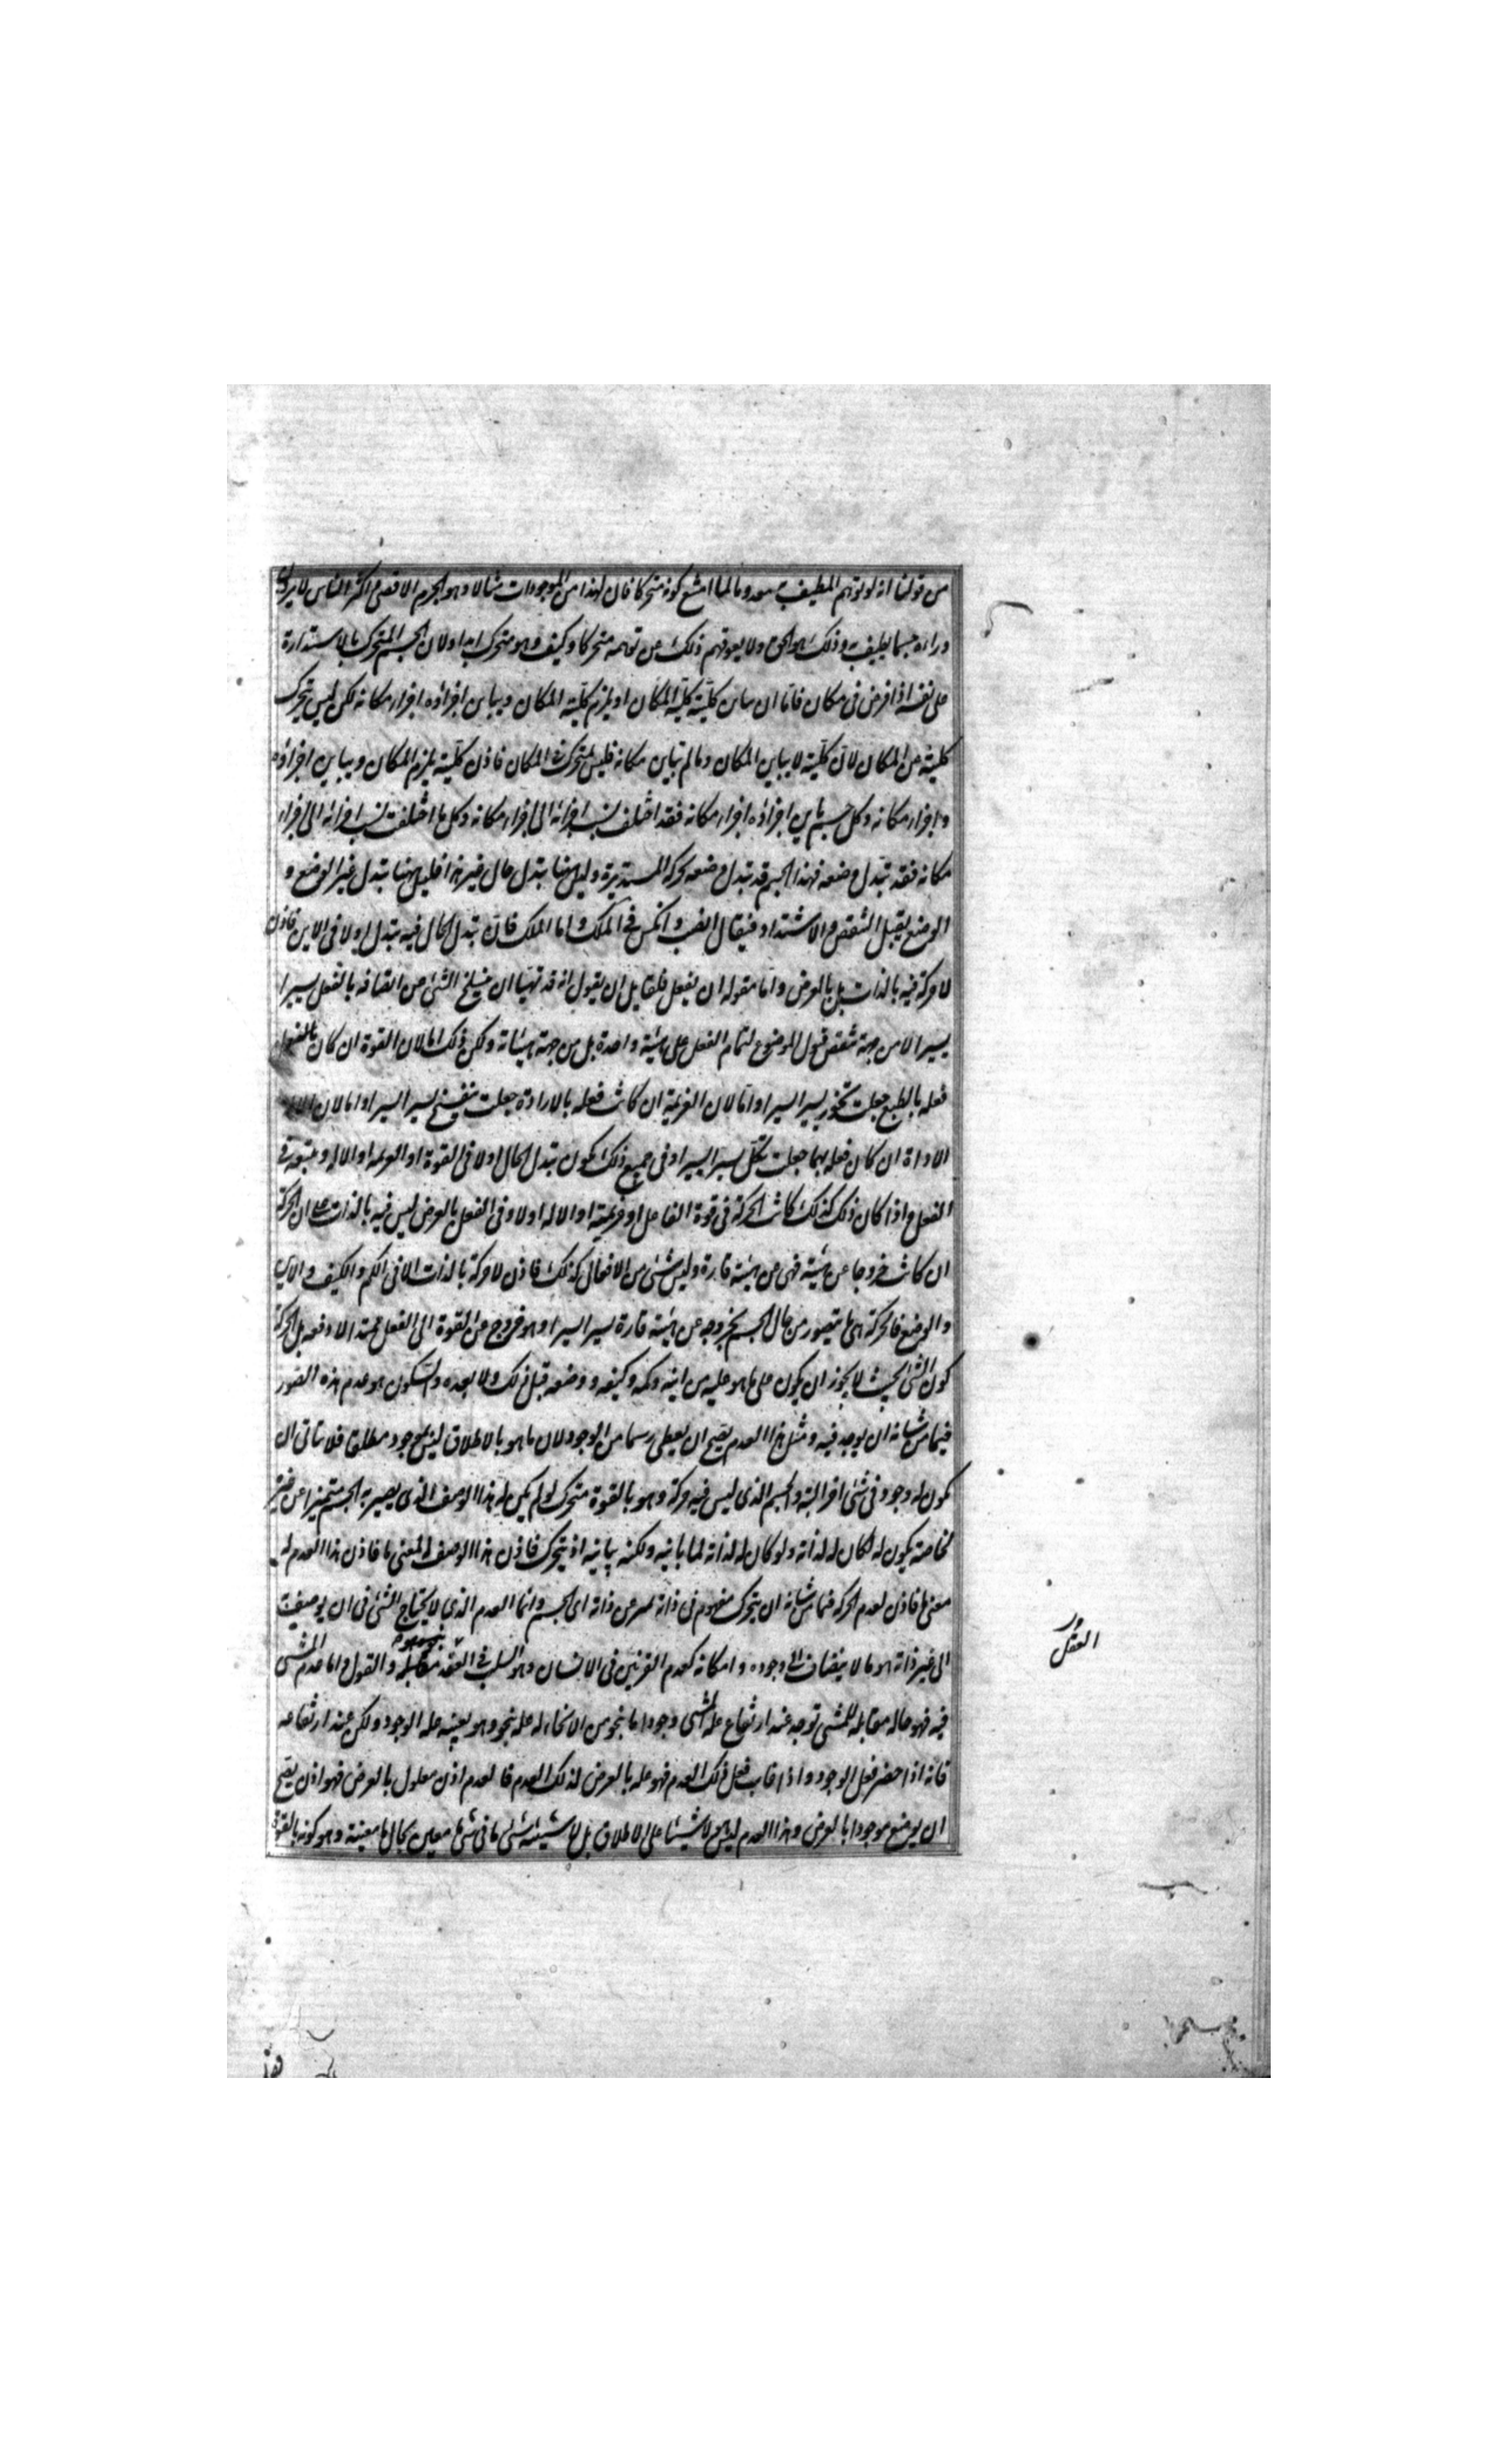 من قولنا انه لو توهم المطيف به معدوما لما امتنع كونه متحركا فان لهذا من الموجودات مثالا وهو الجرم الاقصى واكثر الناس لا يرون
وراءه جسما يطيف به وذلك هو الحق ولا يعوقهم ذلك من توهمه متحركا وكيف وهو متحرك ابدا ولان الجسم المتحرك بالاستدارة
على نفسه اذا فرض فى مكان فاما ان يباين كليته كلية المكان او يلزم كليته المكان ويباين اجزاؤه اجزاء مكانه لكن ليس يتحرك
كليته من المكان لان كليته لا يباين المكان وما لم تباين مكانه فليس بمتحرك فى المكان فاذن كليته يلزم المكان ويباين اجزاؤه
واجزاء مكانه وكل جسم باين اجزاؤه اجزاء مكانه فقد اختلف نسب اجزائه الى اجزاء مكانه وكل ما اختلفت نسب اجزائه الى اجزاء
مكانه فقد تبدل وضعه فهذا الجسم قد تبدل وضعه بحركته المستديرة وليس هنا تبدل حال غير هذا فليس ههنا تبدل غير الوضع و
الوضع يقبل التنقص والاشتداد فيقال انصب وانكس فى الملك واما الملك فان تبدل الحال فيه تبدل اولا فى الاين فاذن
لا حركة فيه بالذات بل بالعرض واما مقولة ان يفعل فلقايل ان يقول انه قد تهيا ان ينسلخ الشئ من اتصافه بالفعل يسيرا
يسيرا لا من جهة تنقص قبول الموضوع لتمام الفعل على هيئة واحدة بل من جهة هيئاته ولكن ذلك اما لان القوة ان كان بالفعل
فعله بالطبع جعلت تخور يسيرا يسيرا واما لان العزيمة ان كانت فعله بالارادة جعلت تنفسخ يسيرا يسيرا واما لان الالة
الاداة ان كان فعله بهما جعلت تكل يسيرا يسيرا وفى جميع ذلك يكون تبدل الحال اولا فى القوة او العزيمة او الالة ويتبعه فى
الفعل واذا كان ذلك كذلك كانت الحركة فى قوة الفاعل او عزيمته او الالة اولا وفى الفعل بالعرض ليس فيه بالذات على ان الحركة
ان كانت خروجا عن هيئة فهى من هيئة قارة وليس شئ من الافعال كذلك فاذن لا حركة بالذات الا فى الكم والكيف والاين
والوضع فالحركة هى ما يتصور من حال الجسم لخروجه عن هيئة قارة يسيرا يسيرا وهو خروج عن القوة الى الفعل ممتدا لا دفعة بل الحركة
كون الشئ بحيث لا يجوز ان يكون على ما هو عليه من اينه وكمه وكيفه ووضعه قبل ذلك ولا بعده والسكون هو عدم هذه الصور
فيما من شانه ان يوجد فيه ومثل هذا العدم يصح ان يعطى رسما من الوجود لان ما هو بالاطلاق ليس بموجود مطلقا فلا يتاتى ان
يكون له وجود فى شئ اخر البتة والجسم الذى ليس فيه حركة وهو بالقوة متحرك لو لم يكن له هذا الوصف الذى يصير به الجسم متميزا عن غيره
بخاصة يكون له لكان له لذاته ولو كان له لذاته لما باينه ولكنه يباينه اذ يتحرك فاذن هذا الوصف له لمعنى ما فاذن هذا العدم له
معنى ما فاذن لعدم الحركة فيما من شانه ان يتحرك مفهوم فى ذاته غير عن ذاته اى الجسم وانما العدم الذى لا يحتاج الشئ فى ان يوصف
الى غير ذاته هو ما لا ينضاف الى وجوده وامكانه كعدم القرنين فى الانسان وهو السلب فى العقد مقابله والقول واما عدم المشى
فيه فهو حالة مقابلة للمشى توجد عند ارتفاع علة المشى وجودا ما بنحو من الانحاء له علة بنحو وهو بعينه علة الوجود ولكن عند ارتفاعه
فانه اذا حضر فعل الوجود واذا غاب فعل ذلك العدم فهو علة بالعرض لذلك العدم فالعدم اذن معلول بالعرض فهو اذن يصح
ان يوضع موجودا بالعرض وهذا العدم ليس هو لا شيئا على الاطلاق بل لا شيئية شئ ما فى شئ ما معين بحال ما معينة وهو كونه بالقوة
العقل